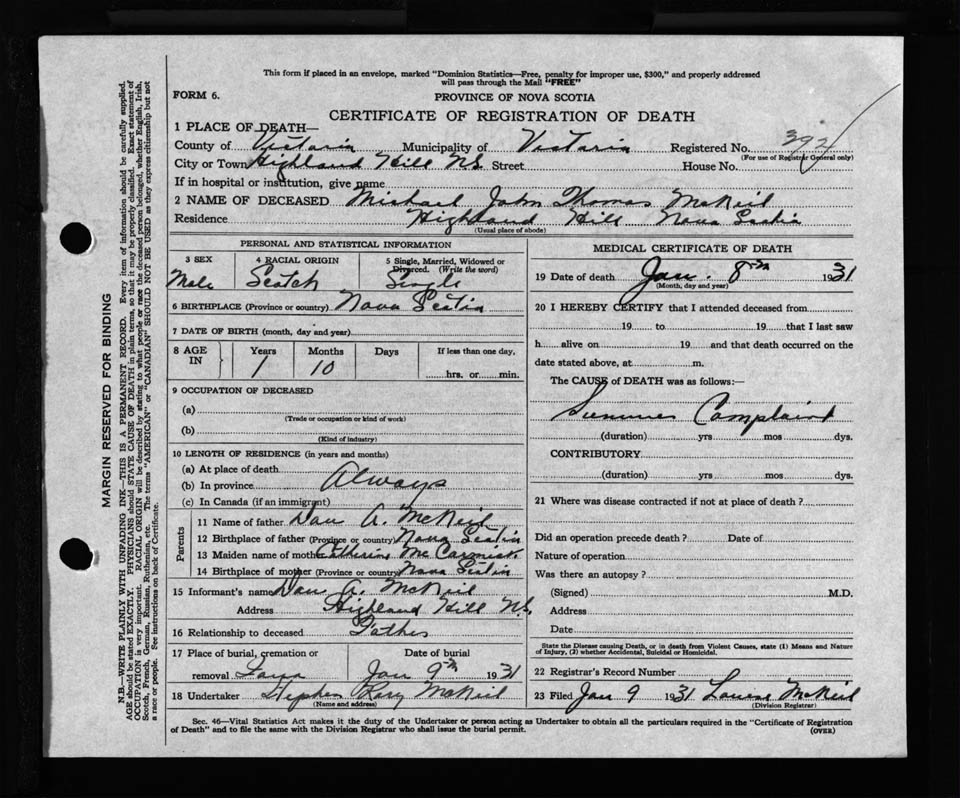 This form if placed in an envelope, marked "Dominion Statistics—Free, penalty for improper use, $300," and properly addressed
will pass through the Mail "FREE"
FORM 6.
PROVINCE OF NOVA SCOTIA
CERTIFICATE OF REGISTRATION OF DEATH
1 PLACE OF DEATH—
County of Victoria Municipality of Victoria Registered No. 392
(For use of Registrar General only)
City or Town Highland Hill N.S. Street House No.
If in hospital or institution, give name
2 NAME OF DECEASED Michael John Thomas McNeil
Residence Highland Hill Nova Scotia
(Usual place of abode)
PERSONAL AND STATISTICAL INFORMATION
3 SEX 4 RACIAL ORIGIN 5 Single, Married, Widowed or
Divorced. (Write the word)
Male Scotch Single
6 BIRTHPLACE (Province or country) Nova Scotia
7 DATE OF BIRTH (month, day and year)
8 AGE IN Years Months Days If less than one day,
1 10 hrs. or min.
9 OCCUPATION OF DECEASED
(a)
(Trade or occupation or kind of work)
(b)
(Kind of industry)
10 LENGTH OF RESIDENCE (in years and months)
(a) At place of death
(b) In province Always
(c) In Canada (if an immigrant)
Parents
11 Name of father Dan A. McNeil
12 Birthplace of father (Province or country) Nova Scotia
13 Maiden name of mother Catherine McCormick
14 Birthplace of mother (Province or country) Nova Scotia
15 Informant's name Dan A. McNeil
Address Highland Hill N.S.
16 Relationship to deceased Father
17 Place of burial, cremation or Date of burial
removal Iona Jan 9th 1931
18 Undertaker Stephen Rory McNeil
(Name and address)
MEDICAL CERTIFICATE OF DEATH
19 Date of death Jan. 8th 1931
(Month, day and year)
20 I HEREBY CERTIFY that I attended deceased from
19 to 19 that I last saw
h alive on 19 and that death occurred on the
date stated above, at m.
The CAUSE of DEATH was as follows:—
Summer Complaint
(duration) yrs mos dys.
CONTRIBUTORY
(duration) yrs mos dys.
21 Where was disease contracted if not at place of death?
Did an operation precede death? Date of
Nature of operation
Was there an autopsy?
(Signed) M.D.
Address
Date
State the Disease causing Death, or in death from Violent Causes, state (1) Means and Nature
of Injury, (2) whether Accidental, Suicidal or Homicidal.
22 Registrar's Record Number
23 Filed Jan 9 1931 McNeil
(Division Registrar)
Sec. 46—Vital Statistics Act makes it the duty of the Undertaker or person acting as Undertaker to obtain all the particulars required in the "Certificate of Registration
of Death" and to file the same with the Division Registrar who shall issue the burial permit.
(OVER)
MARGIN RESERVED FOR BINDING
N.B.—WRITE PLAINLY WITH UNFADING INK—THIS IS A PERMANENT RECORD. Every item of information should be carefully supplied.
AGE should be stated EXACTLY. PHYSICIANS should STATE CAUSE OF DEATH in plain terms, so that it may be properly classified. Exact statement of
OCCUPATION is very important. RACIAL ORIGIN will be described by stating to what people or race the deceased person belonged, whether English, Irish,
Scotch, French, German, Russian, Ruthenian, etc. The terms "AMERICAN" or "CANADIAN" SHOULD NOT BE USED as they express citizenship but not
a race or people. See instructions on back of Certificate.